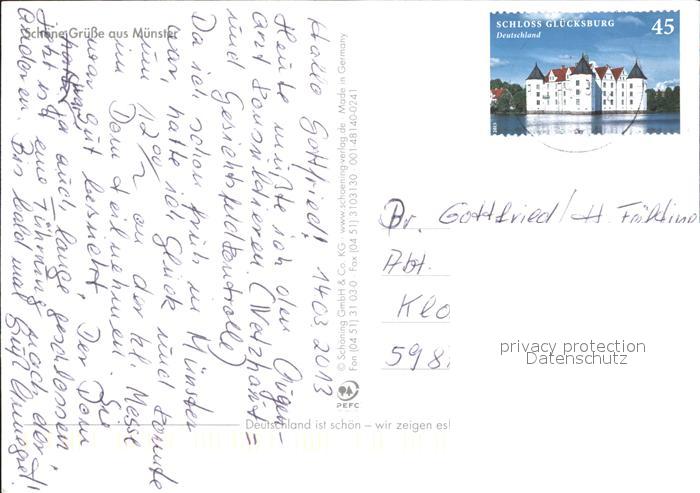 Schöne Grüße aus Münster
Hallo Gottfried! 14.03.2013
Heute mußte ich den Augen-
arzt konsultieren. (Netzhaut=
und Gesichtsfeldkontrolle)
Da ich schon früh in Münster
war, hatte ich Glück und konnte
um 12 00 Uhr an der hl. Messe
im Dom teilnehmen. Sie
war gut besucht. Der Dom
war ja auch lange geschlossen.
Jetzt ist eine Führung nach der
anderen. Bis bald mal Gruß Annegret!
© Schöning GmbH & Co. KG · www.schoening-verlag.de Made in Germany
Fon (04 51) 31 03-0 Fax (04 51) 3103130 001-48140-0241
PEFC
SCHLOSS GLÜCKSBURG 45
Deutschland
2013
Br. Gottfried / H.
Abt.
Klo
598
privacy protection
Datenschutz
Deutschland ist schön – wir zeigen es!